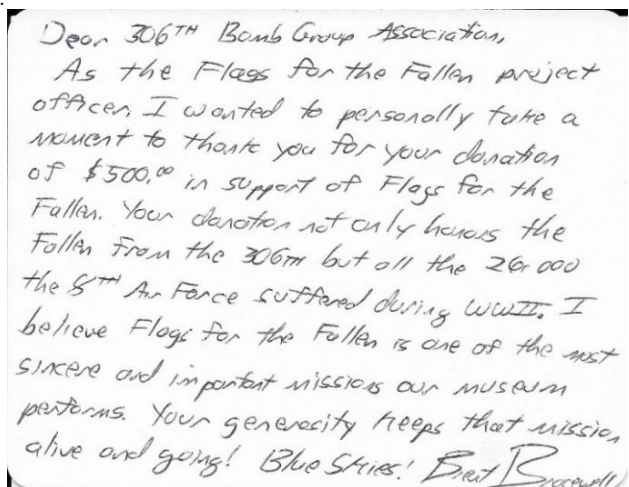 Dear 306TH Bomb Group Association,
As the Flags for the Fallen project
officer, I wanted to personally take a
moment to thank you for your donation
of $500.00 in support of Flags for the
Fallen. Your donation not only honors the
Fallen from the 306TH but all the 26,000
the 8TH Air Force suffered during WWII. I
believe Flags for the Fallen is one of the most
sincere and important missions our museum
performs. Your generosity keeps that mission
alive and going! Blue Skies! Brent Bracewell